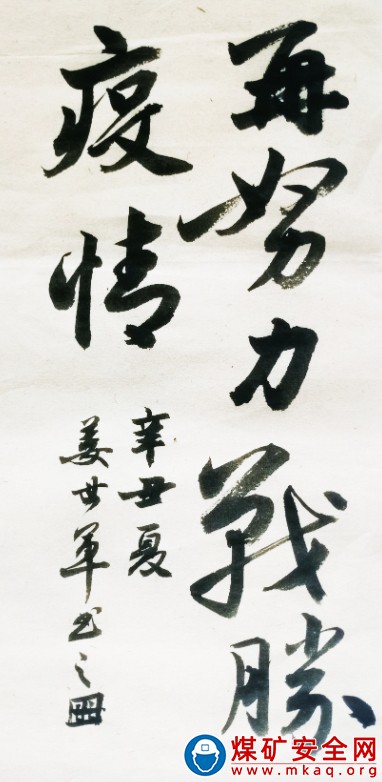 再努力戰勝
疫情
辛丑夏
姜世军书之
煤矿安全网
www.mkaq.org